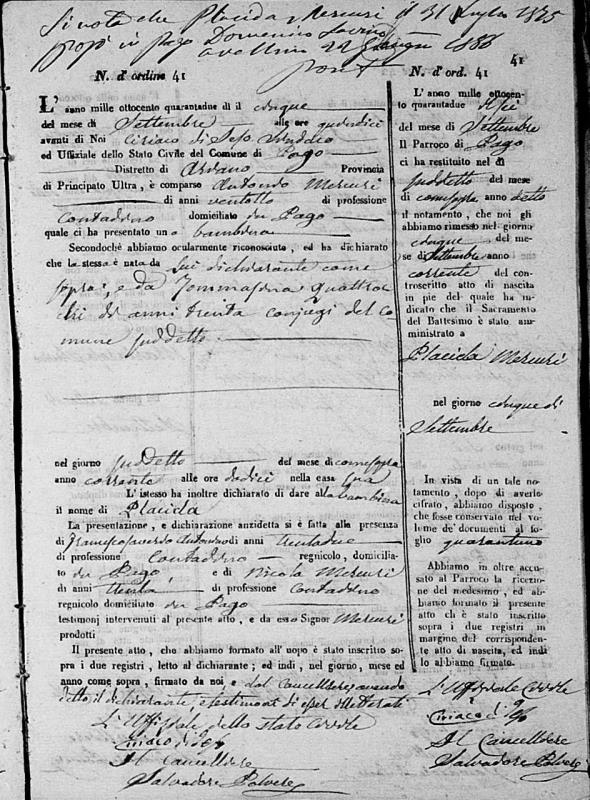 Si nota che Placida Mercuri il 31 Luglio 1875
in Pago Domenico
Avellino 22 Giugno 1886
41
N. d'ordine 41
L'anno mille ottocento quarantadue di il cinque
del mese di Settembre alle ore quindici
avanti di Noi Ciriaco di Sindaco
ed Uffiziale dello Stato Civile del Comune di Pago
Distretto di Ariano Provincia
di Principato Ultra, è comparso Antonio Mercuri
di anni ventotto di professione
Contadino domiciliato in Pago
quale ci ha presentato una bambina
Secondochè abbiamo ocularmente riconosciuto, ed ha dichiarato
che la stessa è nata da Lui dichiarante come
sopra, e da Tommasina Quattroc
chi di anni trenta conjugi del Co
mune suddetto
nel giorno suddetto del mese di comesopra
anno corrente alle ore dodici nella casa sua
L'istesso ha inoltre dichiarato di dare alla bambina
il nome di Placida
La presentazione, e dichiarazione anzidetta si è fatta alla presenza
di Francesco di anni trentadue
di professione Contadino regnicolo, domicilia-
to in Pago, e di Nicola Mercuri
di anni trenta di professione Contadino
regnicolo domiciliato in Pago
testimonj intervenuti al presente atto, e da esso Signor Mercuri
prodotti
Il presente atto, che abbiamo formato all'uopo è stato inscritto so-
pra i due registri, letto al dichiarante; ed indi, nel giorno, mese ed
anno come sopra, firmato da noi e dal Cancelliere avendo
detto il dichiarante, e testimoni di esser illetterati
L'Uffiziale dello stato Civile
Ciriaco di
Il Cancelliere
Salvadore Polvere
N. d'ord. 41
L'anno mille ottocen-
to quarantadue il sei
del mese di Settembre
Il Parroco di Pago
ci ha restituito nel dì
suddetto del mese
di comesopra anno detto
il notamento, che noi gli
abbiamo rimesso nel giorno
cinque del me-
se di Settembre anno
corrente del con-
troscritto atto di nascita
in piè del quale ha in-
dicato che il Sacramento
del Battesimo è stato am-
ministrato a
Placida Mercuri
nel giorno cinque di
Settembre
In vista di un tale no-
tamento, dopo di averlo
cifrato, abbiamo disposto,
che fosse conservato nel vo-
lume de' documenti al fo-
glio quarantuno
Abbiamo in oltre accu-
sato al Parroco la ricezio-
ne del medesimo, ed ab-
biamo formato il presente
atto ch'è stato inscritto
sopra i due registri in
margine del corrisponden-
te atto di nascita, ed indi
lo abbiamo firmato.
L'Uffiziale Civile
Ciriaco di
Il Cancelliere
Salvadore Polvere